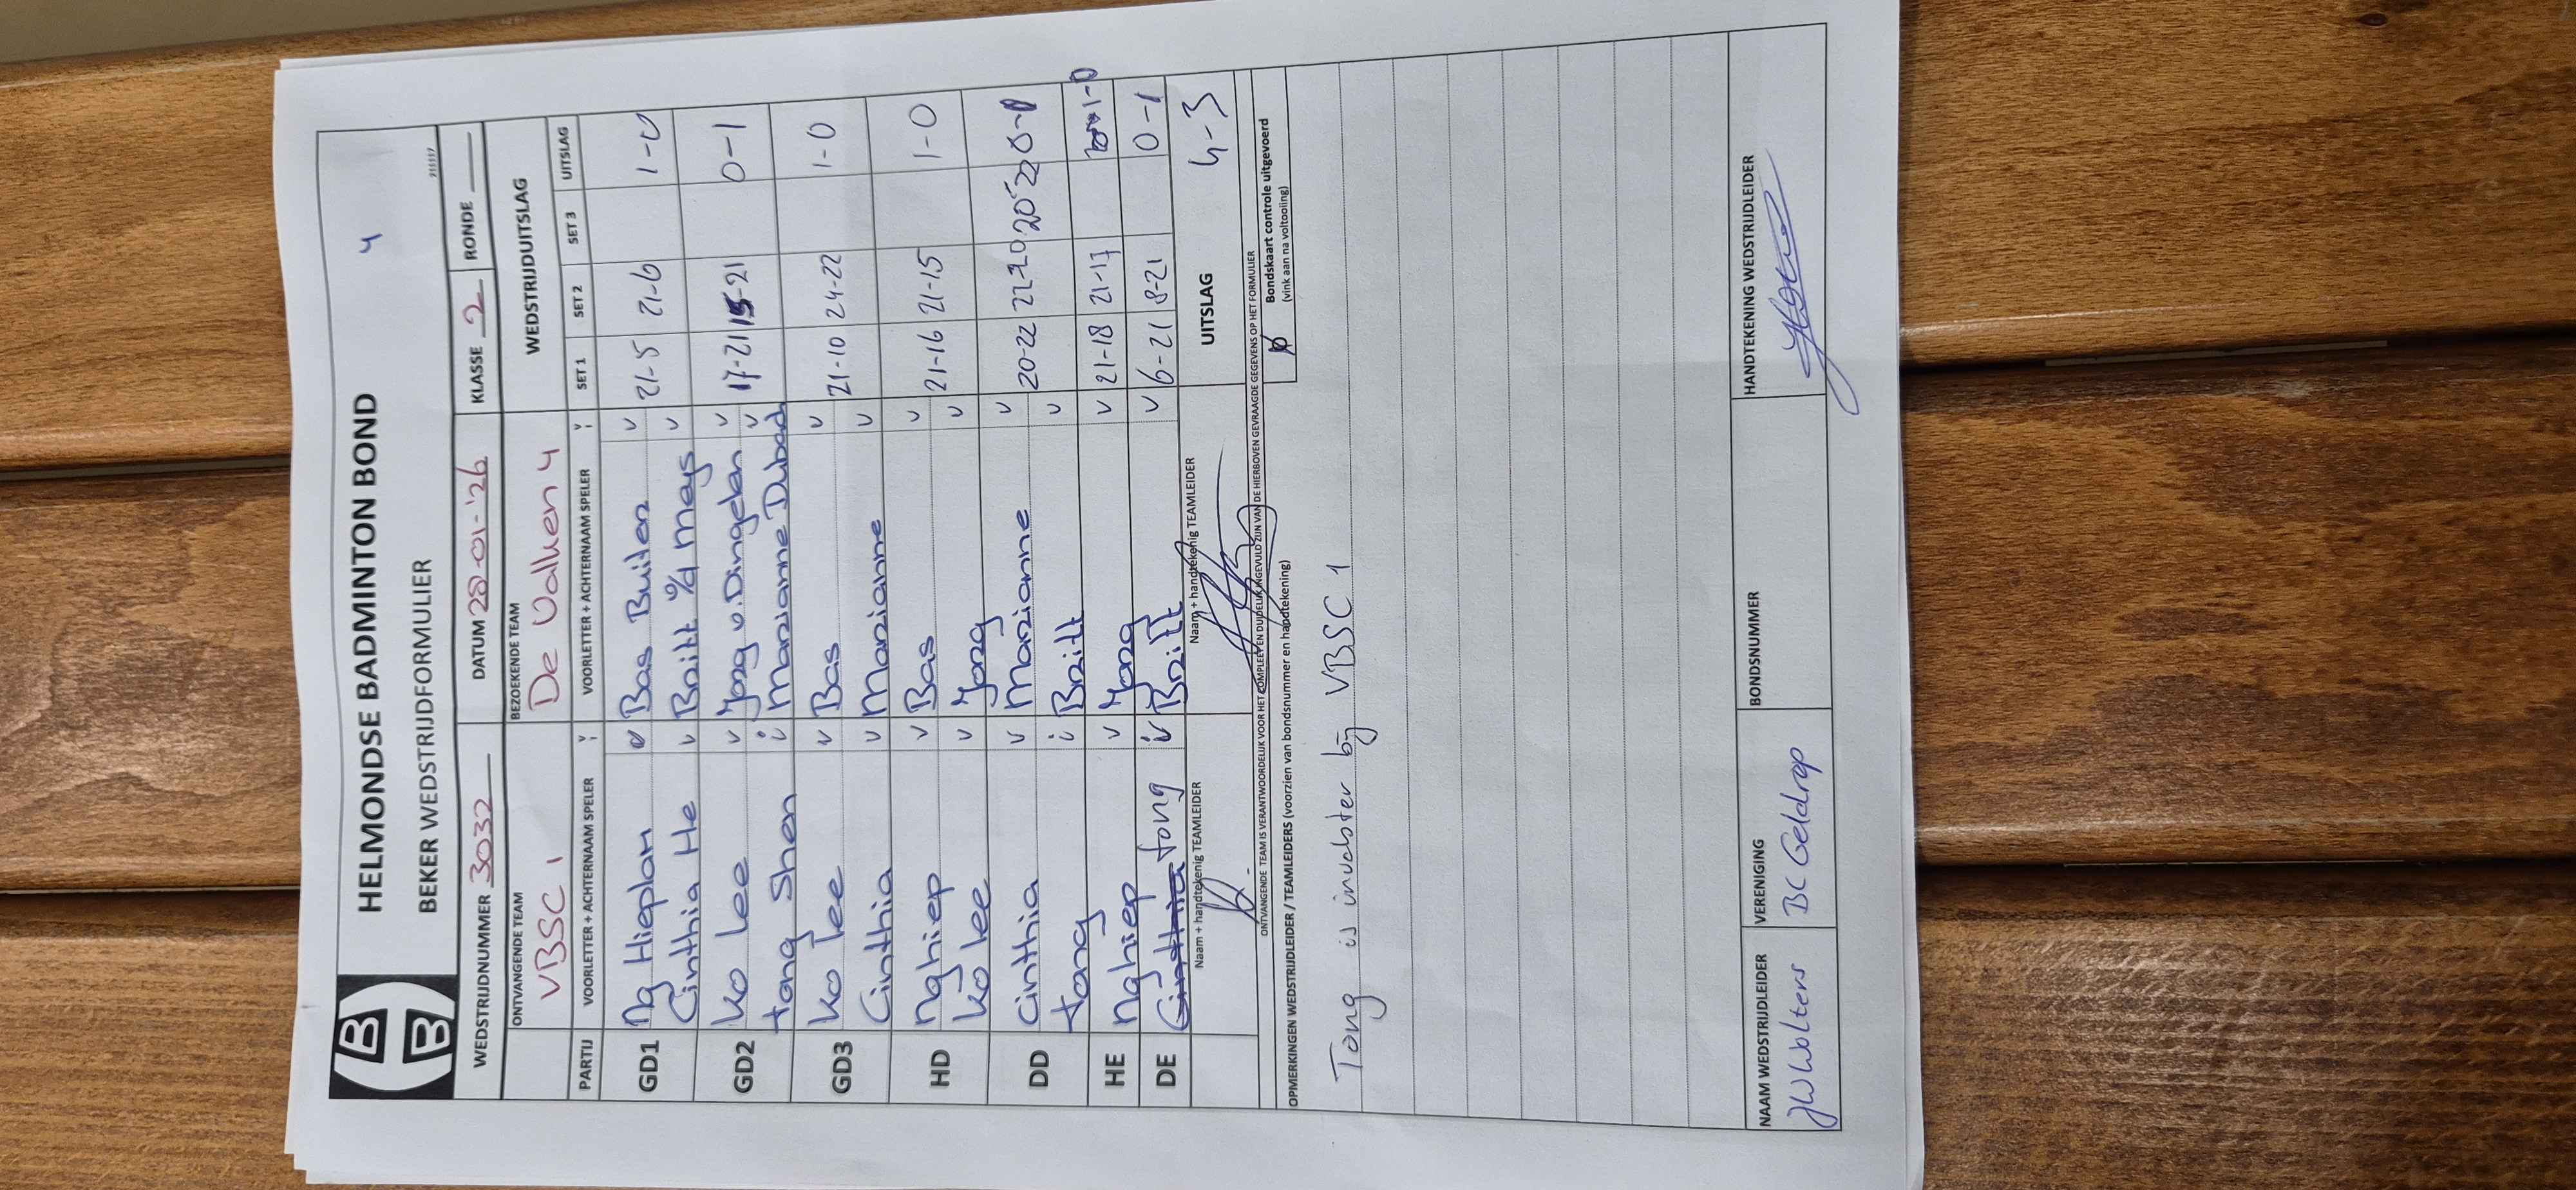 HELMONDSE BADMINTON BOND
BEKER WEDSTRIJDFORMULIER
4
WEDSTRIJDNUMMER 3032 DATUM 28-01-'26 KLASSE 2 RONDE
ONTVANGENDE TEAM BEZOEKENDE TEAM WEDSTRIJDUITSLAG
VBSC 1 De Valken 4
PARTIJ VOORLETTER + ACHTERNAAM SPELER V/I VOORLETTER + ACHTERNAAM SPELER V/I SET 1 SET 2 SET 3 UITSLAG
GD1 Ng Hieplan v Bas Buiten v 21-5 21-6 1-0
Cinthia He v Britt v/d Meys v
GD2 Ko Lee v Jorg v. Dingelen v 17-21 15-21 0-1
tong Shen i Marianne Dubach v
GD3 Ko Lee v Bas v 21-10 24-22 1-0
Cinthia v Marianne v
HD Nghiep v Bas v 21-16 21-15 1-0
Ko Lee v Jorg v
DD Cinthia v Marianne v 20-22 22-20 20-22 0-1
tong i Britt v
HE Nghiep v Jorg v 21-18 21-17 1-0
DE Cinthia tong i Britt v 6-21 8-21 0-1
Naam + handtekenig TEAMLEIDER Naam + handtekenig TEAMLEIDER UITSLAG 4-3
ONTVANGENDE TEAM IS VERANTWOORDELIJK VOOR HET COMPLEET EN DUIDELIJK INGEVULD ZIJN VAN DE HIERBOVEN GEVRAAGDE GEGEVENS OP HET FORMULIER
OPMERKINGEN WEDSTRIJDLEIDER / TEAMLEIDERS (voorzien van bondsnummer en handtekening) Bondskaart controle uitgevoerd
(vink aan na voltooiing)
Tong is invalster bij VBSC 1
NAAM WEDSTRIJDLEIDER VERENIGING BONDSNUMMER HANDTEKENING WEDSTRIJDLEIDER
JW Wolters BC Geldrop